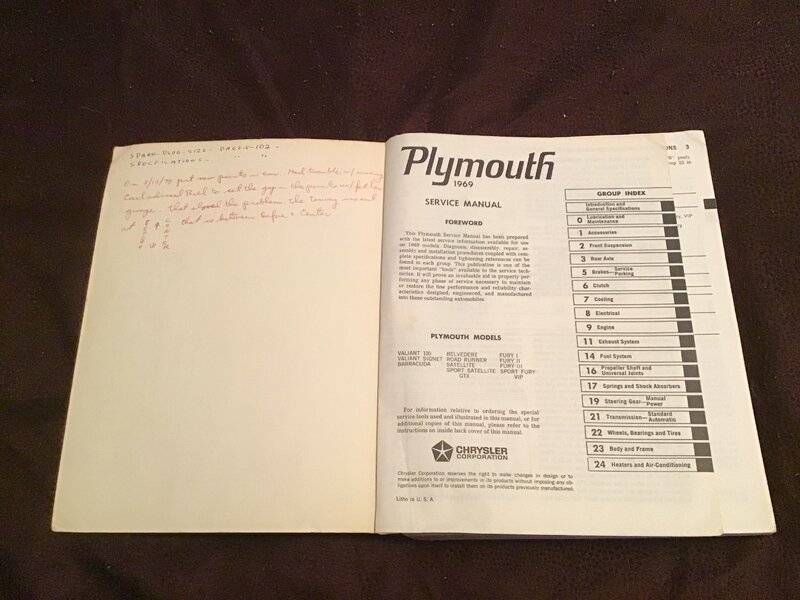 SPARK-PLUG-SIZE. PAGE 8-102.
SPECIFICATIONS.
On put new points in car. Had trouble w/
Carl advised Bill to set the gap in the points w/
gauge. That solved the problem. The timing
at that is between before + Center
Plymouth
1969
SERVICE MANUAL
FOREWORD
This Plymouth Service Manual has been prepared
with the latest service information available for use
on 1969 models. Diagnosis, disassembly, repair, as-
sembly and installation procedures coupled with com-
plete specifications and tightening references can be
found in each group. This publication is one of the
most important "tools" available to the service tech-
nician. It will prove an invaluable aid in properly per-
forming any phase of service necessary to maintain
or restore the fine performance and reliability char-
acteristics designed, engineered, and manufactured
into these outstanding automobiles.
PLYMOUTH MODELS
VALIANT 100 BELVEDERE FURY I
VALIANT SIGNET ROAD RUNNER FURY II
BARRACUDA SATELLITE FURY III
SPORT SATELLITE SPORT FURY
GTX VIP
For information relative to ordering the special
service tools used and illustrated in this manual, or for
additional copies of this manual, please refer to the
instructions on inside back cover of this manual.
CHRYSLER
CORPORATION
Chrysler Corporation reserves the right to make changes in design or to
make additions to or improvements in its products without imposing any ob-
ligations upon itself to install them on its products previously manufactured.
Litho in U. S. A
GROUP INDEX
Introduction and
General Specifications
0 Lubrication and
Maintenance
1 Accessories
2 Front Suspension
3 Rear Axle
5 Brakes—Service
Parking
6 Clutch
7 Cooling
8 Electrical
9 Engine
11 Exhaust System
14 Fuel System
16 Propeller Shaft and
Universal Joints
17 Springs and Shock Absorbers
19 Steering Gear—Manual
Power
21 Transmission—Standard
Automatic
22 Wheels, Bearings and Tires
23 Body and Frame
24 Heaters and Air-Conditioning
ONS 3
VIP